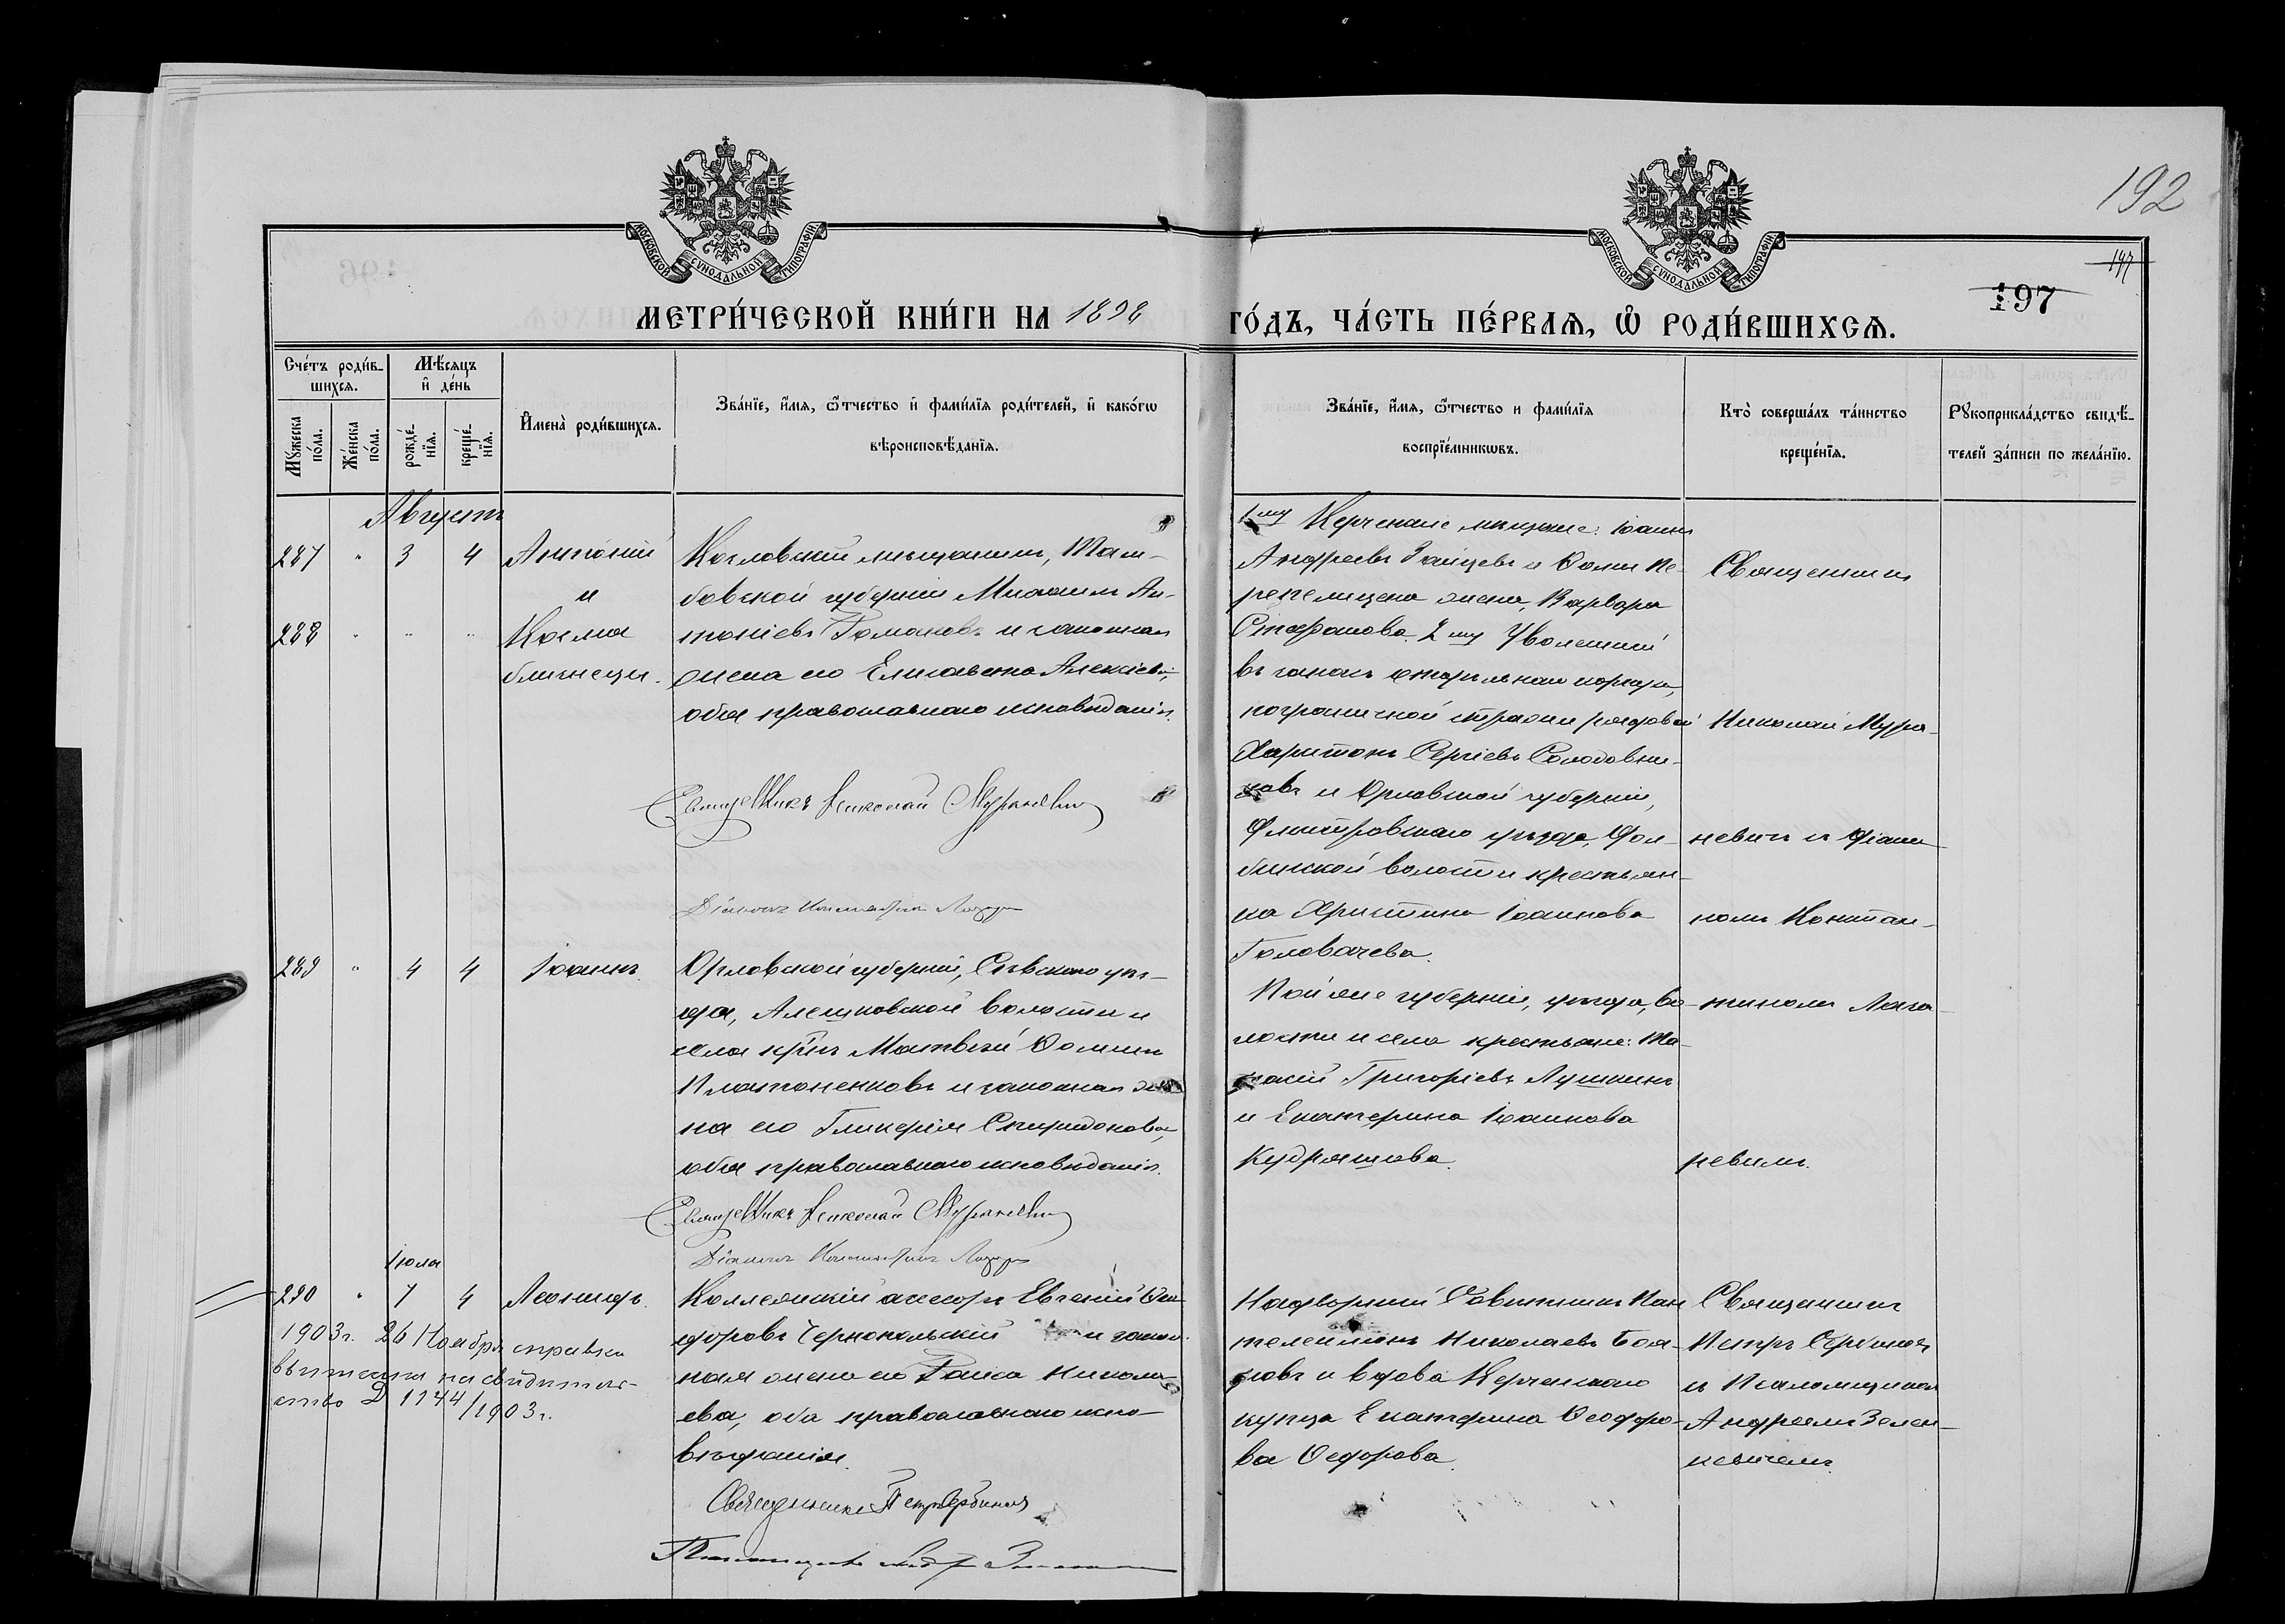 192
197
197
МОСКОВСКОЙ СѴНОДАЛЬНОЙ ТИПОГРАФІИ
МОСКОВСКОЙ СѴНОДАЛЬНОЙ ТИПОГРАФІИ
МЕТРИ́ЧЕСКОЙ КНИ́ГИ НА 1898
ГО́ДЪ, ЧА́СТЬ ПЕ́РВАЯ, Ѽ РОДИ́ВШИХСЯ.
Сче́тъ роди́в-
шихся.
Мꙋжеска по́ла.
Же́нска по́ла.
Мѣ́сяцъ
и҆ де́нь
рожде́нїѧ.
креще́нїѧ.
И҆мена̀ роди́вшихся.
Зва́нїе, и҆́мя, ѻ҆́тчество и҆ фами́лїѧ роди́телей, и҆ како́гѡ
вѣроисповѣ́данїѧ.
Зва́нїе, и҆́мя, ѻ҆́тчество и фами́лїѧ
воспрїе́мникѡвъ.
Кто̀ соверша́лъ та́инство
креще́нїѧ.
Рꙋкоприкла́дство свидѣ́-
телей за́писи по жела́нїю.
Августъ
287 " 3 4 Антоній
и
288 " " " Косма
близнецы.
Козловскій мѣщанинъ, Там-
бовской губерніи Михаилъ Ан-
тоніевъ Гомановъ и законная
жена его Елисавета Алексіева,
оба православнаго исповѣданія.
Священникъ Николай Мураневич
Діаконъ Константинъ Лазарев
1му Керченскіе мѣщане: Іоаннъ
Андреевъ Зайцевъ и Фомы Пе-
репелицына жена, Варвара
Стефанова. 2му Уволенный
въ запасъ отдѣльнаго корпуса
пограничной стражи рядовой
Харитонъ Сергіевъ Солодовни-
ковъ и Орловской губерніи,
Дмитровскаго уѣзда, Дол-
бинской волости крестьян-
ка Христина Іоаннова
Головачева.
Священникъ
Николай Мура-
невичъ и Діако-
номъ Констан-
тиномъ Лаза-
ревымъ.
289 " 4 4 Іоаннъ.
Орловской губерніи, Сѣвскаго уѣз-
да, Алешковской волости и
села кр-нъ Матвѣй Фоминъ
Платоненковъ и законная же-
на его Гликерія Спиридонова,
оба православнаго исповѣданія.
Священникъ Николай Мураневич
Діаконъ Константинъ Лазарев
Той же губерніи, уѣзда, во-
лости и села крестьяне:
Григоріевъ Лушкинъ
и Екатерина Іоаннова
Кудряшова.
Іюля
290 " 7 4 Леонидъ.
Коллежскій ассесоръ Евгеній Ѳео-
доровъ Чернопольскій и закон-
ная жена его Раиса Никола-
ева, оба православнаго испо-
вѣданія.
Священникъ Петръ Сербиновъ
Псаломщикъ Андрей
Надворный Совѣтникъ Пан-
телеимонъ Николаевъ Боя-
ровъ и вдова Керченскаго
купца Екатерина Ѳеодоро-
ва Ѳедорова.
Священникъ
Петръ Сербиновъ
и Псаломщикомъ
Андреемъ Зелен-
кевичемъ.
1903 г. 26 Ноября справка
выписана на свидѣтель-
ство № 1144/1903 г.